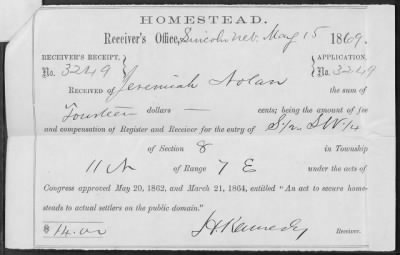 HOMESTEAD.
Receiver's Office, Lincoln Neb. May 15 1869.
RECEIVER'S RECEIPT, No. 3249
APPLICATION, No. 3249
RECEIVED of Jeremiah Nolan the sum of
Fourteen dollars — cents; being the amount of fee
and compensation of Register and Receiver for the entry of S/2 SW/4
of Section 8 in Township
11 N of Range 7 E under the acts of
Congress approved May 20, 1862, and March 21, 1864, entitled "An act to secure home-
steads to actual settlers on the public domain."
$ 14.00 J.H. Kennedy Receiver.